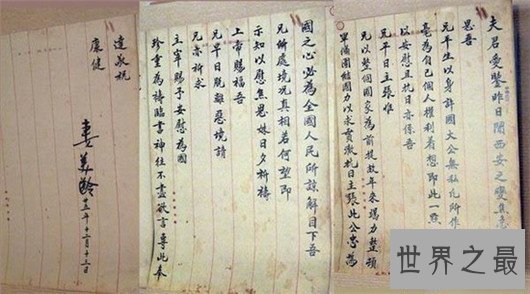 夫君愛鑒昨日聞西安之變焦急
思吾
兄平生以身許國大公無私凡所作
毫為自己個人權利着想即此一點
以安慰且抗日亦係吾
兄平日主張惟
兄以整個國家為前提故年來竭力整頓
軍備團結國力以求貫澈抗日主張此公忠為
國之心必為全國人民所諒解目下吾
兄所處境況真相若何望即
示知以慰焦思妹日夕祈禱
上帝賜福吾
兄早日脫離惡境請
兄亦祈求
主宰賜予安慰為國
珍重為禱臨書神往不盡欲言專此奉
達敬祝
康健
妻美齡
廿五年十二月十三日
世界之最